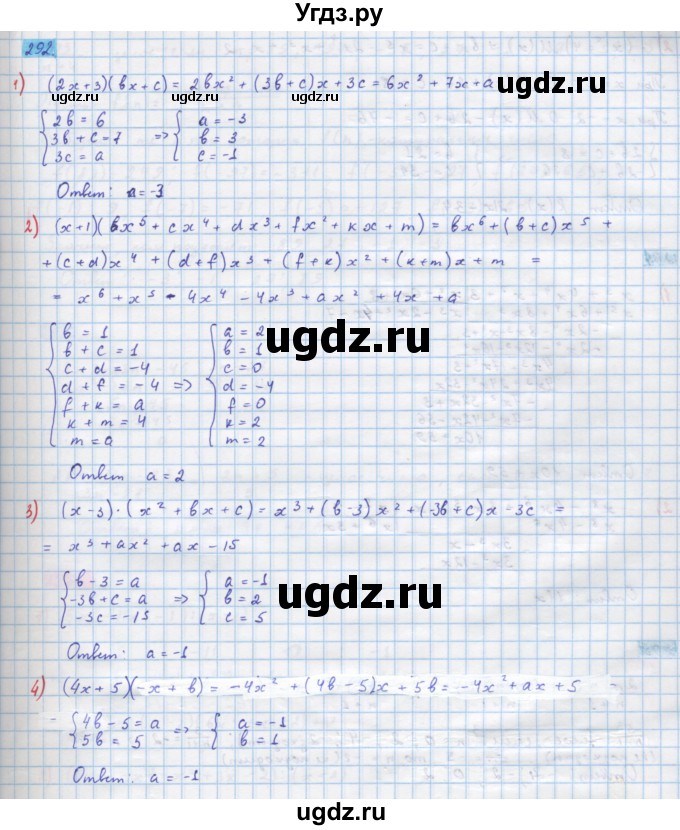 Угдз.ру
292.
1) (2x+3)(bx+c) = 2bx² + (3b+c)x + 3c = 6x² + 7x + a
ugdz.ru ugdz.ru ugdz.ru ugdz.ru
{ 2b = 6
3b + c = 7
3c = a
=> { a = -3
b = 3
c = -1
Ответ: a = -3
2) (x+1)(bx⁵ + cx⁴ + dx³ + fx² + кx + m) = bx⁶ + (b+c)x⁵ +
+ (c+d)x⁴ + (d+f)x³ + (f+к)x² + (к+m)x + m =
= x⁶ + x⁵ - 4x⁴ - 4x³ + ax² + 4x + a
{ b = 1
b + c = 1
c + d = -4
d + f = -4
f + к = a
к + m = 4
m = a
=> { a = 2
b = 1
c = 0
d = -4
f = 0
к = 2
m = 2
ugdz.ru
Ответ a = 2
3) (x-3)·(x² + bx + c) = x³ + (b-3)x² + (-3b+c)x - 3c =
= x³ + ax² + ax - 15
{ b - 3 = a
-3b + c = a
-3c = -15
=> { a = -1
b = 2
c = 5
ugdz.ru
Ответ: a = -1
4) (4x+5)(-x+b) = -4x² + (4b-5)x + 5b = -4x² + ax + 5
ugdz.ru ugdz.ru ugdz.ru ugdz.ru
{ 4b - 5 = a
5b = 5
=> { a = -1
b = 1
Ответ: a = -1
ugdz.ru